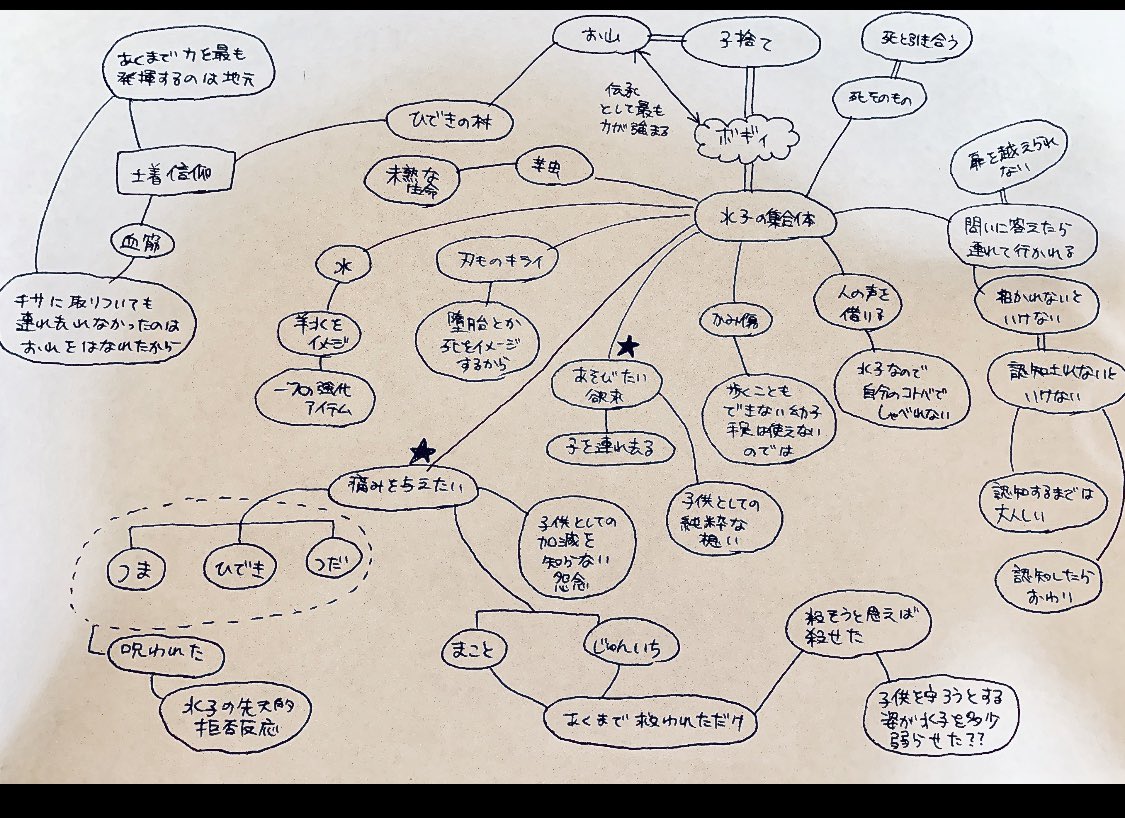 あくまで力を最も
発揮するのは地元
お山
子捨て
死と引き合う
死そのもの
伝承
として最も
力が強まる
ボギィ
ひできの村
土着信仰
未熟な
生命
芋虫
血筋
水子の集合体
扉を越えられ
ない
問いに答えたら
連れて行かれる
水
刃ものキライ
人の声を
借りる
招かれないと
いけない
チサに取りついても
連れ去れなかったのは
お山をはなれたから
羊水を
イメージ
堕胎とか
死をイメージ
するから
かみ傷
★
あそびたい
欲求
水子なので
自分のコトバで
しゃべれない
認知されないと
いけない
アイテム
子を連れ去る
歩くことも
できない幼子
手足は使えない
のでは
★
痛みを与えたい
子供としての
純粋な
想い
認知するまでは
大人しい
子供としての
加減を
知らない
怨念
つま
ひでき
つだい
認知したら
おわり
呪われた
まこと
じゅんいち
殺そうと思えば
殺せた
水子の先天的
拒否反応
あくまで救われただけ
子供を守ろうとする
姿が水子を多少
弱らせた??